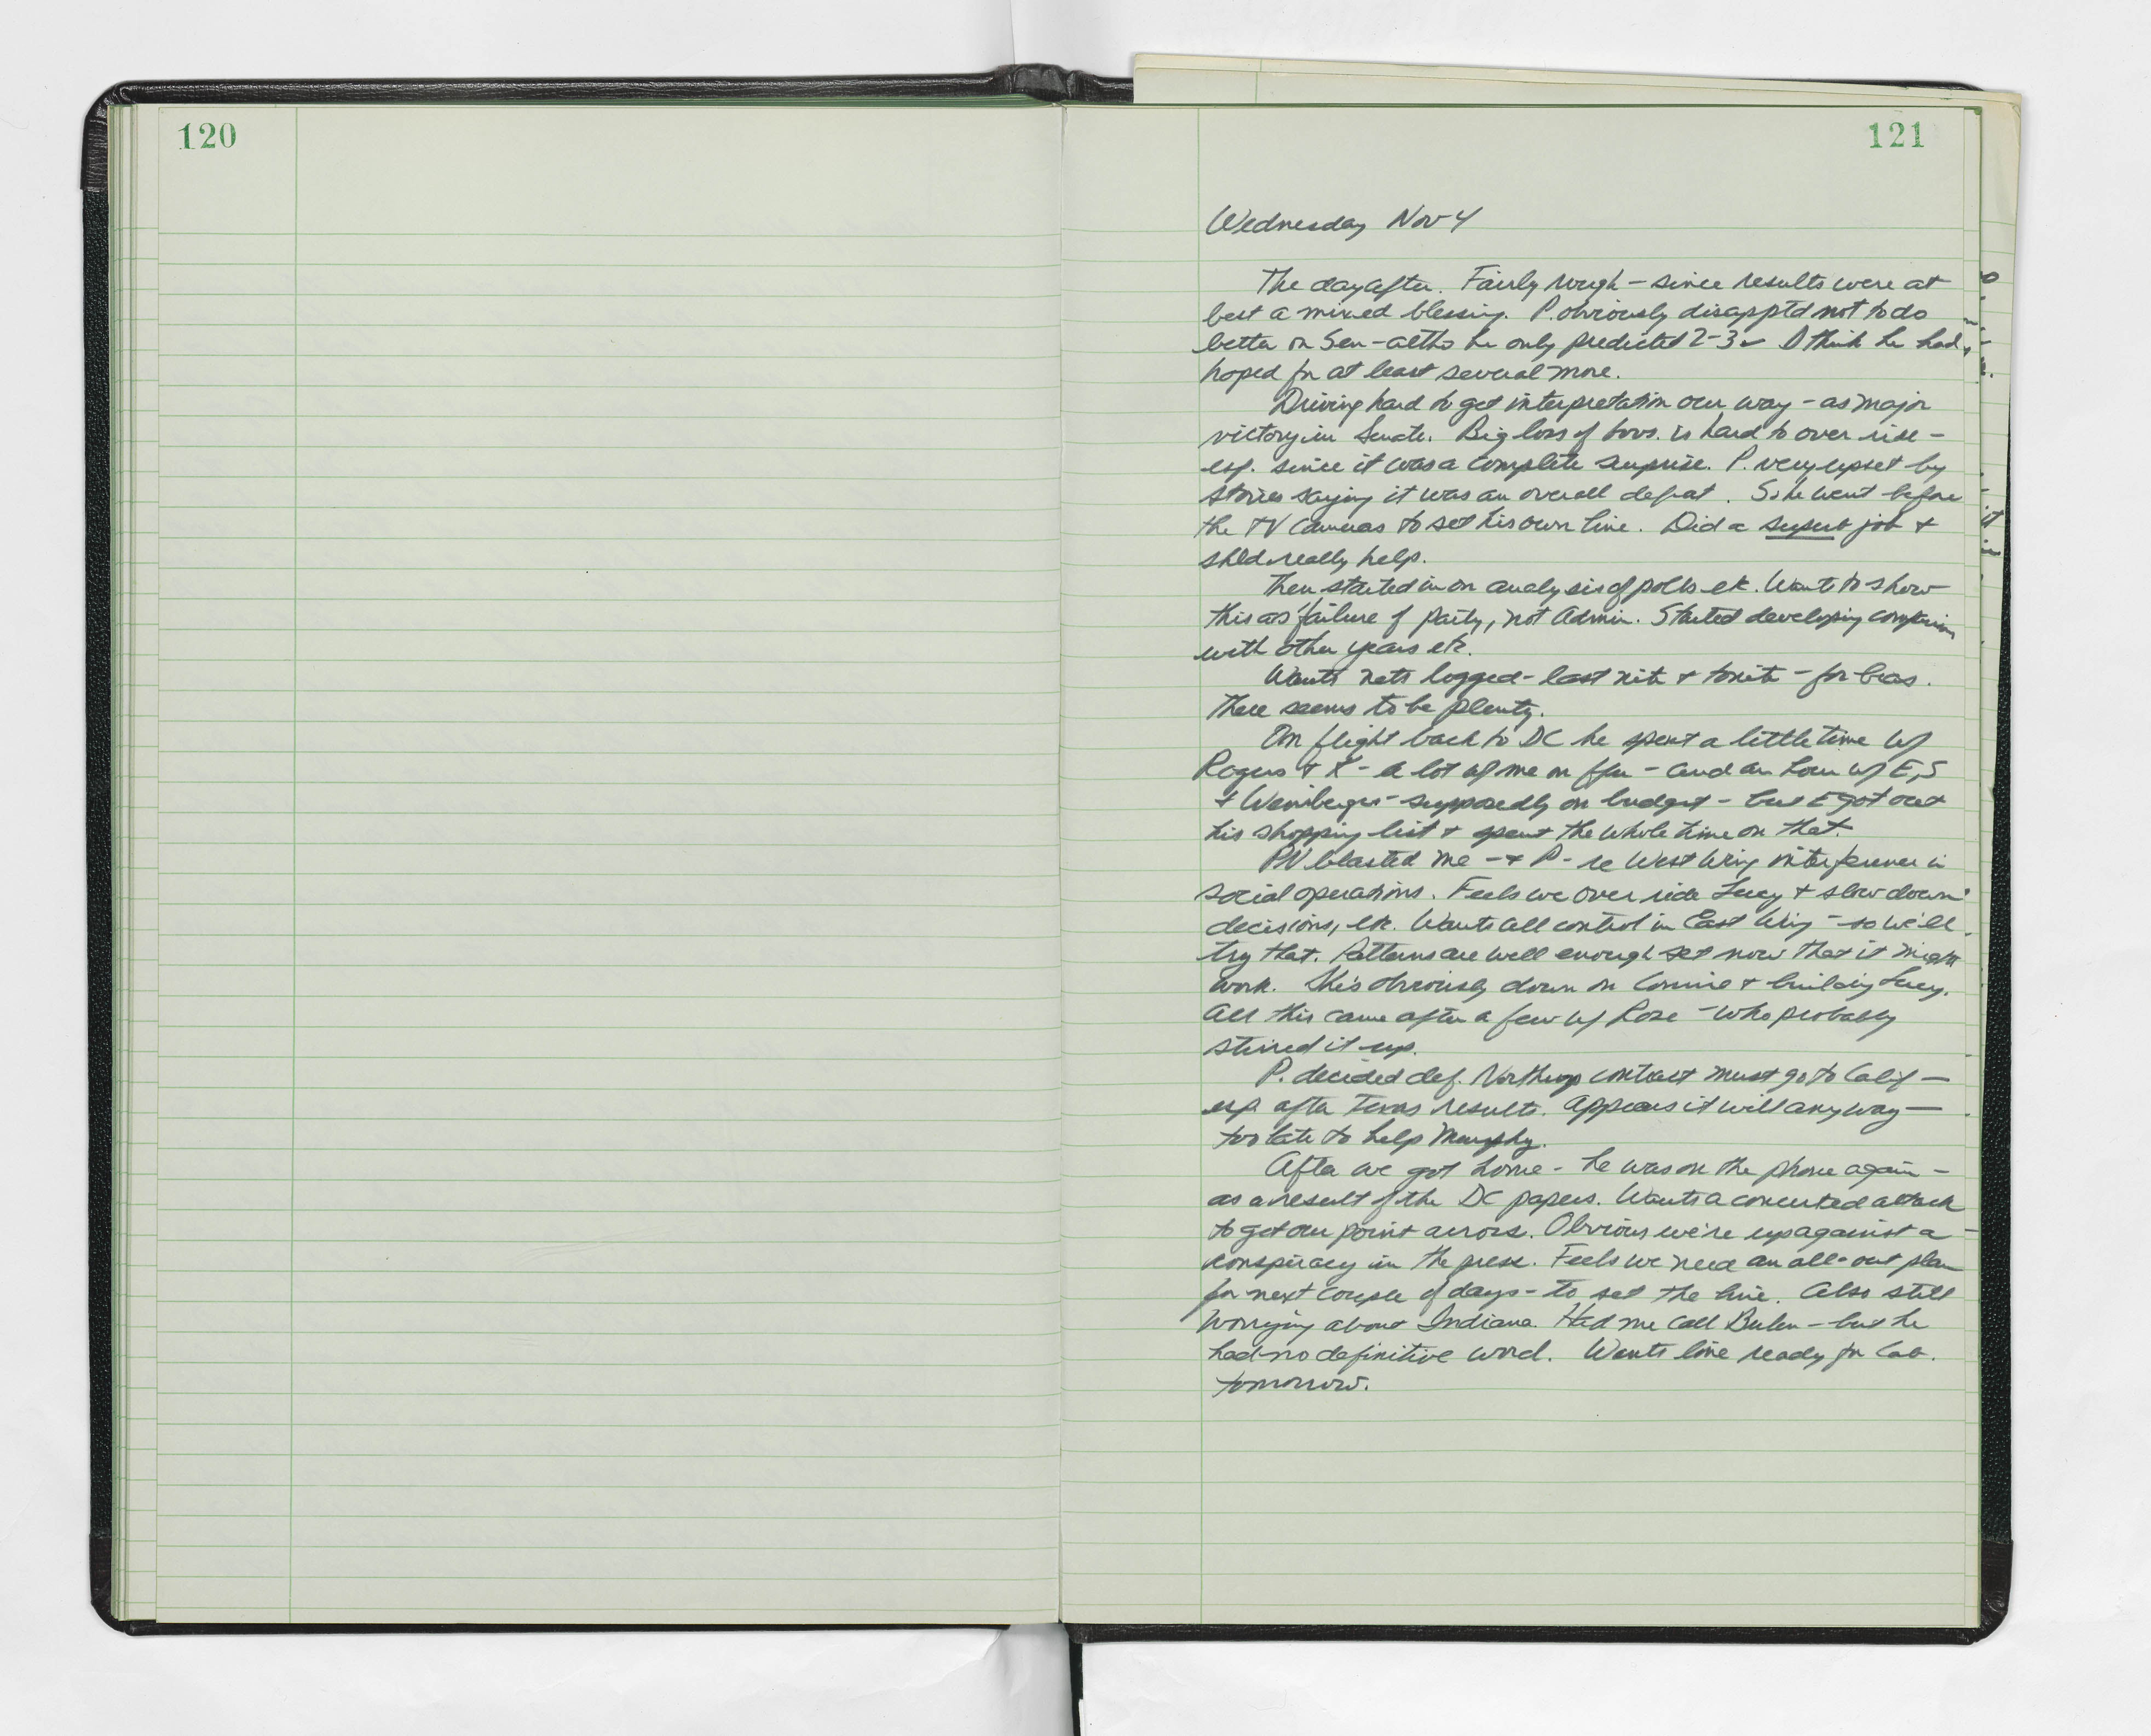 120
121
Wednesday Nov 4
The day after. Fairly rough - since results were at
best a mixed blessing. P. obviously disapptd not to do
better on Sen - altho he only predicted 2-3 I think he had
hoped for at least several more.
Driving hard to get interpretation our way - as major
victory in Senate. Big loss of Govs. is hard to over ride -
esp. since it was a complete surprise. P. very upset by
stories saying it was an overall defeat. So he went before
the TV cameras to set his own line. Did a superb job &
shld really help.
Then started in on analysis of polls etc. Wants to show
this as failure of party, not Admin. Started developing comparison
with other years etc.
Wants nets logged - last nite & tonite - for bias.
There seems to be plenty.
On flight back to DC he spent a little time w/
Rogers & K - a lot w/ me on - and an hour w/ E, S
& Weinberger - supposedly on budget - but E got out
his shopping list & spent the whole time on that.
PN blasted me - & P - re West Wing interference in
social operations. Feels we over ride Lucy & slow down
decisions, etc. Wants all control in East Wing - so we'll
try that. Patterns are well enough set now that it might
work. She's obviously down on Connie & building Lucy.
All this came after a few w/ Rose - who probably
stirred it up.
P. decided def. Northrop contract must go to Calif -
esp. after Texas results. Appears it will any way -
too late to help Murphy.
After we got home - he was on the phone again -
as a result of the DC papers. Wants a concerted attack
to get our point across. Obvious we're up against a
conspiracy in the press. Feels we need an all-out plan
for next couple of days - to set the line. Also still
worrying about Indiana. Had me call Bulen - but he
had no definitive word. Wants line ready for Cab.
tomorrow.